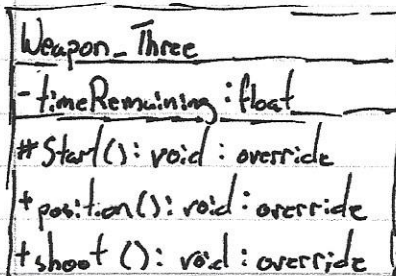 Weapon_Three
- timeRemaining : float
# Start() : void : override
+ position() : void : override
+ shoot () : void : override